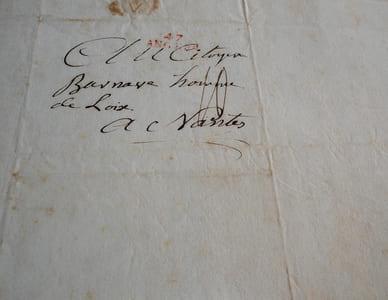 47
Au Citoyen
Barnave homme
de Loix
A Nantes